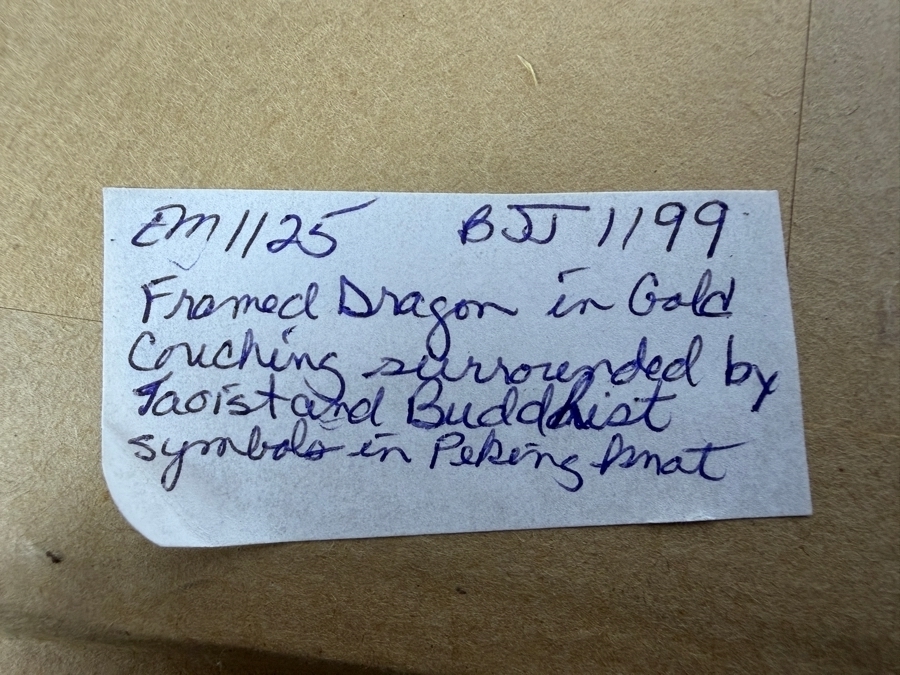 EM1125 BJJ 1199
Framed Dragon in Gold
Couching surrounded by
Taoist and Buddhist
symbols in Peking knot